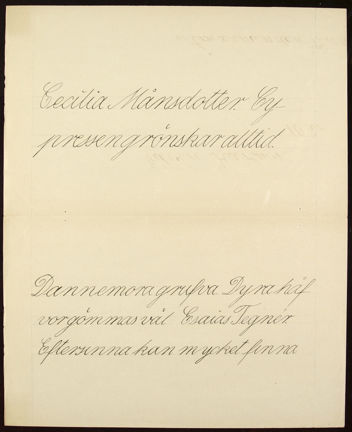 Cecilia Månsdotter. Cy-
pressen grönskar alltid.
Dannemora grufva Dyra håf
vor gömmas väl. Esaias Tegnér.
Eftersinna kan mycket finna